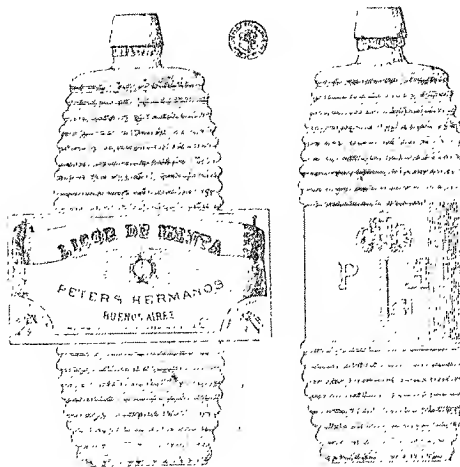 LICOR DE MENTA
PETERS HERMANOS
BUENOS AIRES
P H